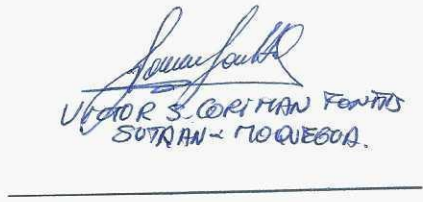 VICTOR S. CORIMAN FONTTIS
SUTRAN - MOQUEGUA.